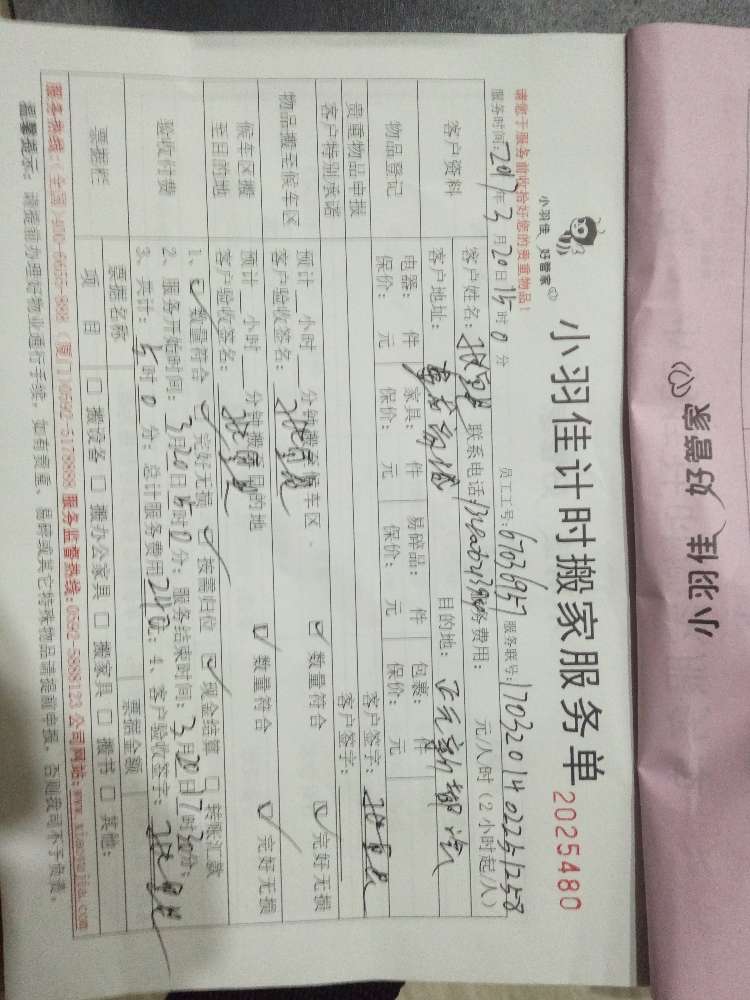 小羽佳 好管家
小羽佳 好管家
小羽佳计时搬家服务单
2025480
请您于服务前收拾好您的贵重物品！
员工工号：67036957 服务联号：1703201402251258
服务时间：2017年3月20日15时0分
客户资料
客户姓名： 联系电话： 服务费用： 元/小时（2小时起/人）
客户地址： 目的地：
物品登记
电器： 件 家具： 件 易碎品： 件 包裹： 件
保价： 元 保价： 元 保价： 元 保价： 元
贵重物品申报 客户签字：
客户特别承诺 客户签字：
物品搬至候车区
预计 小时 分钟搬至候车区。 ☑数量符合 ☑完好无损
客户验收签名：
候车区搬至目的地
预计 小时 分钟搬至目的地 ☑数量符合 ☑完好无损
客户验收签名：
验收付费
1、☑数量符合 ☑完好无损 ☑按需归位 ☑现金结算 □转账汇款
2、服务开始时间：3月20日15时0分；服务结束时间：3月20日17时30分；
3、共计：5时0分；总计服务费用240元；4、客户验收签字：
票据栏
票据名称 票据金额
项目 □搬设备 □搬办公家具 □搬家具 □搬书 □其他：
服务热线：（全国）400-6655-888 （厦门）0592-5178888 服务监督热线：0592-5888123 公司网站：www.xiaoyujia.com
温馨提示：请提前办理好物业通行手续，如有贵重、易碎或其它特殊物品请提前申报，否则我司不予负责。